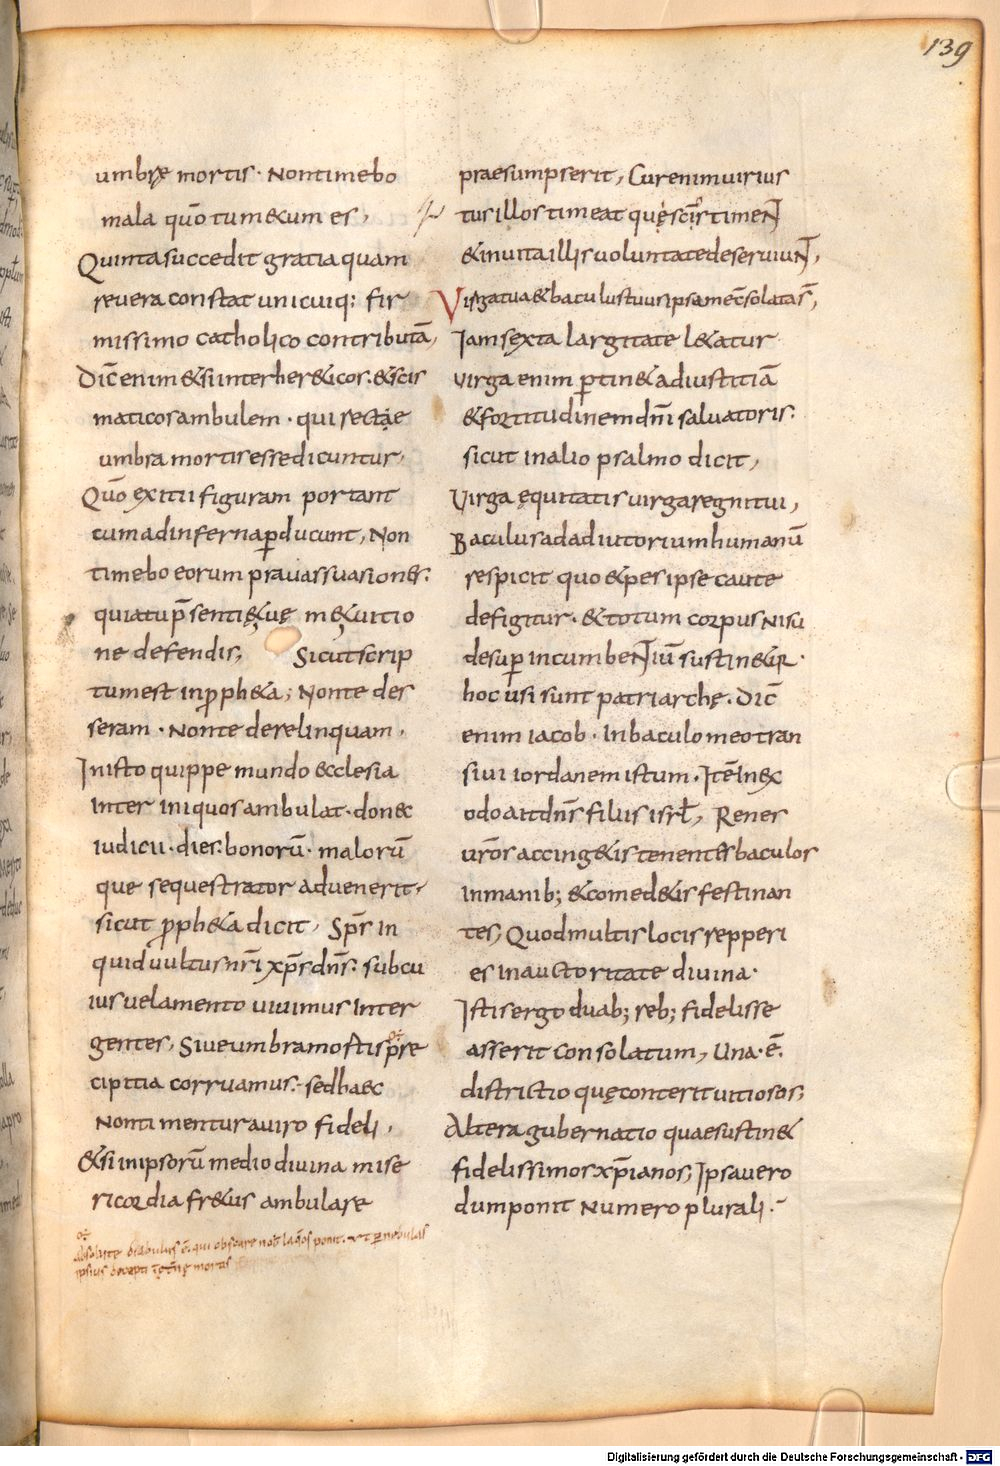 139
umbrę mortis · Non timebo
mala quō tu mecum es,
Quinta succedit gratia quam
revera constat unicuiq; fir
missimo catholico contributā,
Dic̄ enim & si inter her&icos. & scis
maticos ambulem · qui sectae
umbra mortis esse dicuntur,
Quō exitii figuram portant
cum ad inferna ꝑducunt, Non
timebo eorum pravas suasiones.
quia tu p̄senti
ne defendis, Sicut scrip
tum est in proph&a; Non te des
seram · Non te derelinquam,
In isto quippe mundo ecclesia
inter iniquos ambulat · donec
iudicii · dies · bonorū · malorū
que sequestrator advenerit,
sicut proph&a dicit, Spr̄ in
quid vultus nr̄i xp̄s dn̄s. sub cu
ius velamento vivimus inter
gentes, Sive umbra mortis pre
cipitia corruamus. sed haec
Non timentur a viro fideli,
& si in ipsorū medio divina mise
ricordia fr&us ambulare
Absolute diabulus ē. qui obscure nob laq̄os ponit. ut ꝑ nebulas
ipsius decepti
praesumpserit, Cur enim virius
tus illos timeat quę scit's timeNT
& invita illis voluntate deserviuNT,
Virga tua & baculus tuus ipsa me c̄solata s̄,
Iam sexta largitate l&atur
virga enim ꝑtin& ad iustitiā
& fortitudinem dn̄i salvatoris.
sicut in alio psalmo dicit,
Virga ęquitatis virga regni tui,
Baculus ad adiutorium humanū
respicit quo & pes ipse caute
defigitur · & totum corpus nisu
desuꝑ incumbeNTiū sustin&ur.
hoc usi sunt patriarchę. Dic̄
enim iacob · In baculo meo tran
sivi iordanem istum. Itē In ex
odo ait dn̄s filiis isrl̄, Renes
vr̄os accing&is tenentes baculos
in manib; & comed&is festinan
tes, Quod multis locis repperi
es in auctoritate divina.
Istis ergo duab; reb; fidelisse
asserit consolatum, Una · ē.
districtio quę conterit vitiosos,
Altera gubernatio quae sustin&
fidelissimos xp̄ianos, Ipsa vero
dum ponit Numero plurali.
Digitalisierung gefördert durch die Deutsche Forschungsgemeinschaft - DFG